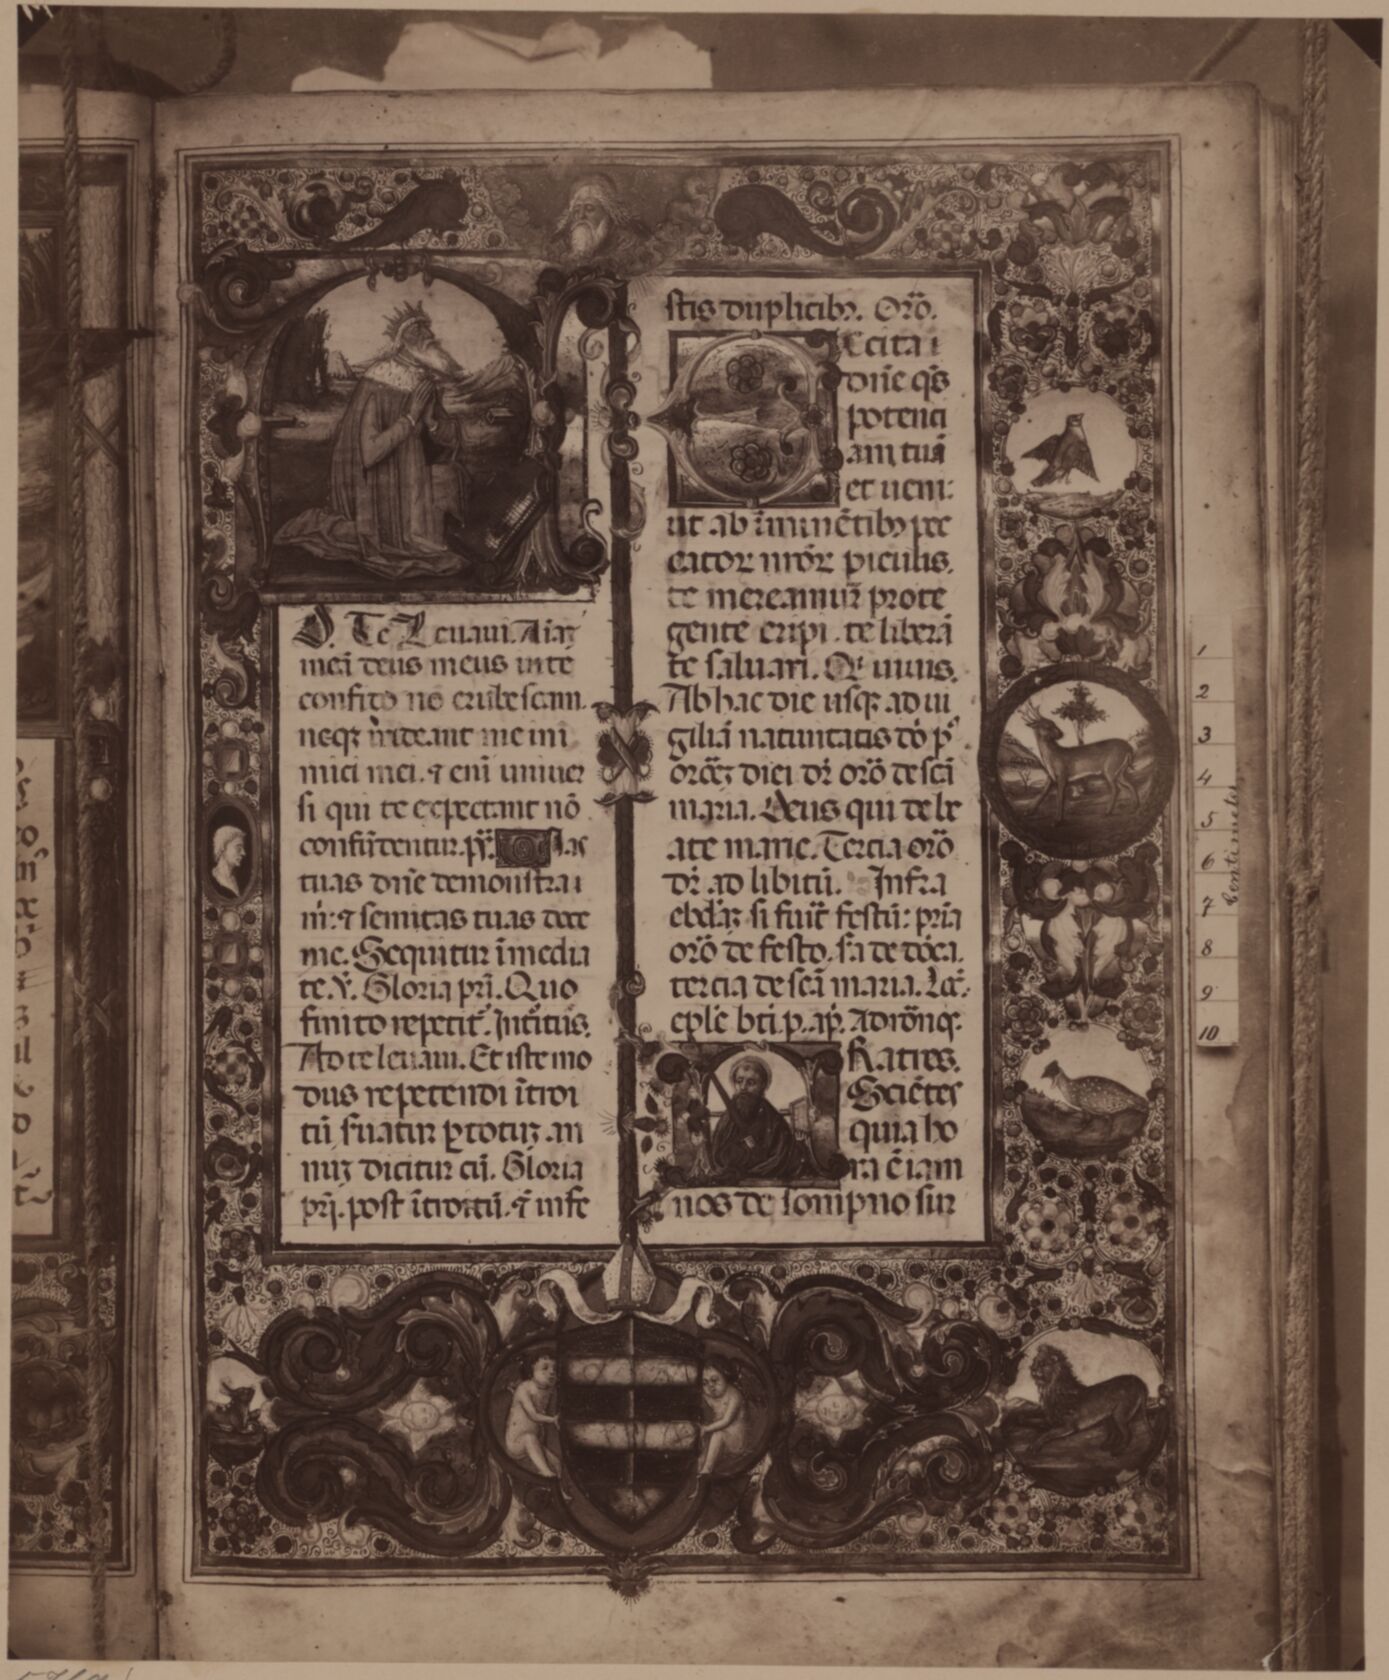 D. Te Leuaui. Aiaʒ
meā deus meus in te
confido nō erubescam.
neqʒ irrideant me ini
mici mei. ⁊ eni uniuer
si qui te expectant nō
confūdentur. p̄s. Vias
tuas dn̄e demonstra i
m̄: ⁊ semitas tuas doce
me. Sequitur īmedia
te. V̄. Gloria pr̄i. Quo
finito repetit̄. Intoitus.
Ad te leuaui. Et iste mo
dus repetendi ītroi
tū suatur p totuʒ an
nuʒ dicitur cū. Gloria
pr̄i. post ītroitū. ⁊ infe
stis duplicibʒ. Orō.
Excita
dn̄e qs̄
potenti
am tuā
et ueni:
ut ab īminētibʒ pec
catoꝝ nr̄oꝝ piculis.
te mereamur prote
gente eripi. te liberā
te saluari. Qui uiuis.
Ab hac die usqʒ ad ui
giliā natiuitatis dō p̄
orōeʒ diei dr̄ orō de scā
maria. Deus qui de be
ate marie. Tercia orō
dr̄ ad libitū. Infra
ebdāʒ si fuit̄ festū: pria
orō de festo. sa de dōca.
tercia de scā maria. Lcc̄.
eple bti. p. ap. Ad rōnos.
Fratres.
Sciētes
quia ho
ra ē iam
nos de sompno sur
1
2
3
4
5
6
7
8
9
10
Centimetes